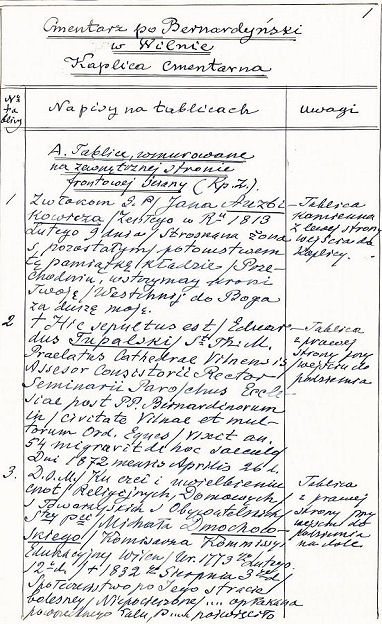 1
Cmentarz po Bernardyński
w Wilnie
Kaplica cmentarna
№ tablicy
Napisy na tablicach
Uwagi
A. Tablice, wmurowane
na zewnętrznej stronie
frontowej ściany (Kp. Z.).
1. Zwłokom Ś. P./ Jana Auzbi-
kowicza / zeszłego w Rᵘ 1813
Lutego 9 dnia / Stroskana żona
z pozostałym / potomstwem
tę pamiątkę / kładzie / Prze-
chodniu, wstrzymay kroki
Twoje / Westchnij do Boga
za duszę moję.
Tablica
kamienna
z lewej strony
wejścia do
kaplicy.
2 + Hic sepultus est / Eduar-
dus Tupalski / St. Th. M.
Praelatus Cathedrae Vilnensis
Assesor Consistorii Rector
Seminarii Parochus Eccle-
siae post P.P. Bernardinorum
in / civitate Vilnae et mul-
torum Ord. Eques / Vixit an.
54 migravit de hoc saeculo
Dni 1872 mensis Aprilis 26 d.
Tablica
z prawej
strony przy
wejściu do
3. D.O.M / Ku czci i uwielbieniu
cnot / Religijnych, Domowych
i Towarzyskich i Obywatelskich
Michała Dmocho-
skiego / Komisarza Kommissyi
Edukacyjnej Wilen / Ur. 1773 Lutego
12 d. + 1832 Sierpnia 3
Społeczeństwo po Jego stracie
bolesnej / Niepocieszone .... opłakana
powszechnego żalu,
Tablica
z prawej
strony przy
wejściu do
na dole